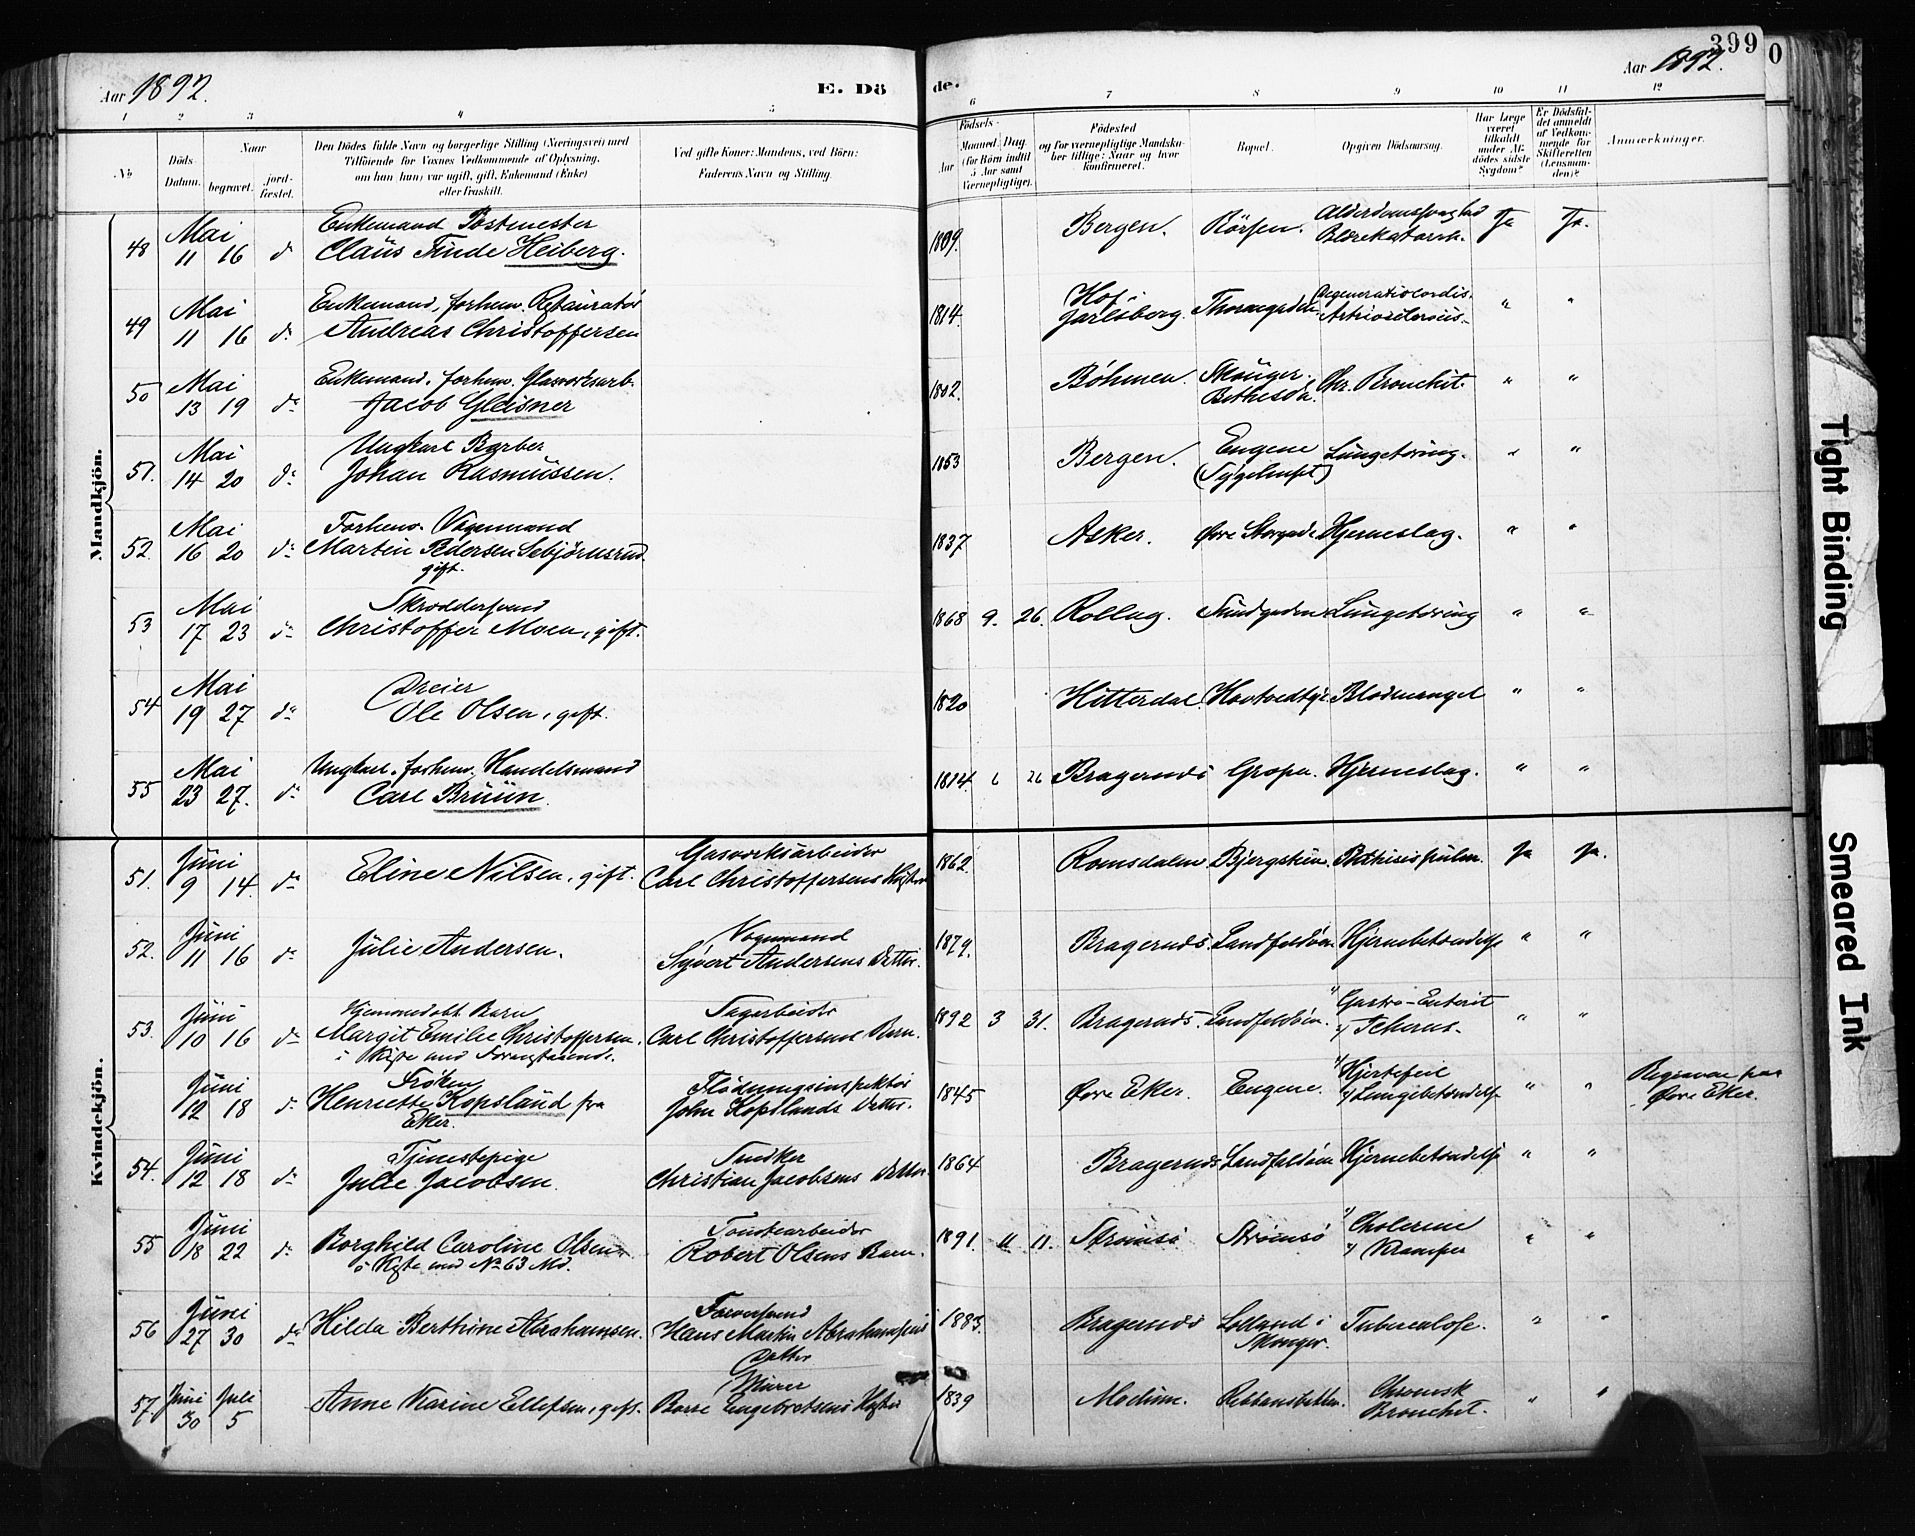 Aar 1892.
E. Dö
de.
Aar 1892.
399
0
1 2 3 4 5 6 7 8 9 10 11 12
No
Döds-Datum.
Naar
begravet.
jord-fæstet.
Den Dödes fulde Navn og borgerlige Stilling (Næringsvei) med
Tilföiende for Voxnes Vedkommende af Oplysning,
om han (hun) var ugift, gift, Enkemand (Enke)
eller fraskilt.
Ved gifte Koner: Mandens, ved Börn:
Faderens Navn og Stilling.
Födsels-
Aar
Maaned. Dag
(for Börn indtil
5 Aar samt
Værnepligtige).
Födested
og for værnepligtige Mandskaber tillige: Naar og hvor
konfirmeret.
Bopæl.
Opgiven Dödsaarsag.
Har Læge
været
tilkaldt
under Afdödes sidste
Sygdom?
Er Dödsfaldet anmeldt
af Vedkommende for
Skifteretten
(Lensmanden)?
Anmærkninger.
Mandkjön.
48 Mai 11 16 do Enkemand Postmester Claus Finde Heiberg. Bergen. Börsen. Ja Ja.
49 Mai 11 16 do Enkemand, forhenv. Restauratör Andreas Christoffersen 1814. Hof Jarlsberg. " "
50 Mai 13 19 do Enkemand. forhenv. Glasværksarb. Jacob Gleisner 1802. Böhmen. Skouger. Bethesda. Chr. Bronchit. " "
51. Mai 14 20 do Ungkarl Barber Johan Rasmussen. 1853 Bergen. Eugene (Sygehuset) Lungetæring. " "
52. Mai 16 20 do Forhenv. Vognmand Martin Pedersen Sebjörnsrud gift. 1837 Asker. Övre Storgade Hjerneslag. " "
53 Mai 17 23 do Skræddersvend Christoffer Moen, gift. 1868 9. 26. Rollag. Lungetæring " "
54 Mai 19 27 do Dreier Ole Olsen, gift. 1820 Hitterdal. Blodmangel " "
55 Mai 23 27. do Ungkarl. forhenv. Handelsmand Carl Bruun. 1814. 6 26 Bragernæs Gropen. Hjerneslag. " "
Kvindekjön.
51. Juni 9 14. do Eline Nilsen, gift. Gasværksarbeider Carl Christoffersens Hustru 1862. Romsdalen Bjergstien. Phthisis pulm. Ja Ja.
52. Juni 11 16 do Julie Andersen. Vognmand Syvert Andersens Datter. 1879. Bragernæs. Landfaldöen Hjernebetændelse " "
53. Juni 10 16 do Hjemmedöbt Barn Margit Emilie Christoffersen. i Kiste med Sagarbeider Carl Christoffersens Barn. 1892 3 31. Bragernæs. Landfaldöen. 1) Gastro-Enterit 2) " "
Juni 12 18 do Fröken Henriette Kopsland fra Eker. Flödningsinspektör John Kopslands Datter. 1845 Övre Eker. Eugene. 1) Hjertefeil 2) Lungebetændelse " " Begravet paa Övre Eker.
54. Juni 12 18 do Tjenestepige Julie Jacobsen. Snedker Christian Jacobsens Datter. 1864 Bragernæs Landfaldöen Hjernebetændelse " "
55 Juni 18 22 do Borghild Caroline Olsen i Kiste med No 63 Md. Robert Olsens Barn. 1891. 11 11. Strömsö Strömsö 1) Cholerine 2) Kramper " "
56 Juni 27 30 do Hilda Berthine Abrahamsen. Farversvend Hans Martin Abrahamsens Datter 1883. Bragernæs Skouger. Tuberculose. " "
57. Juni 30 Juli 5 Anne Karine Ellefsen, gift. Murer Engebretsens Hustru 1839 Modum. Chronisk Bronchit. " "
Tight Binding
Smeared Ink